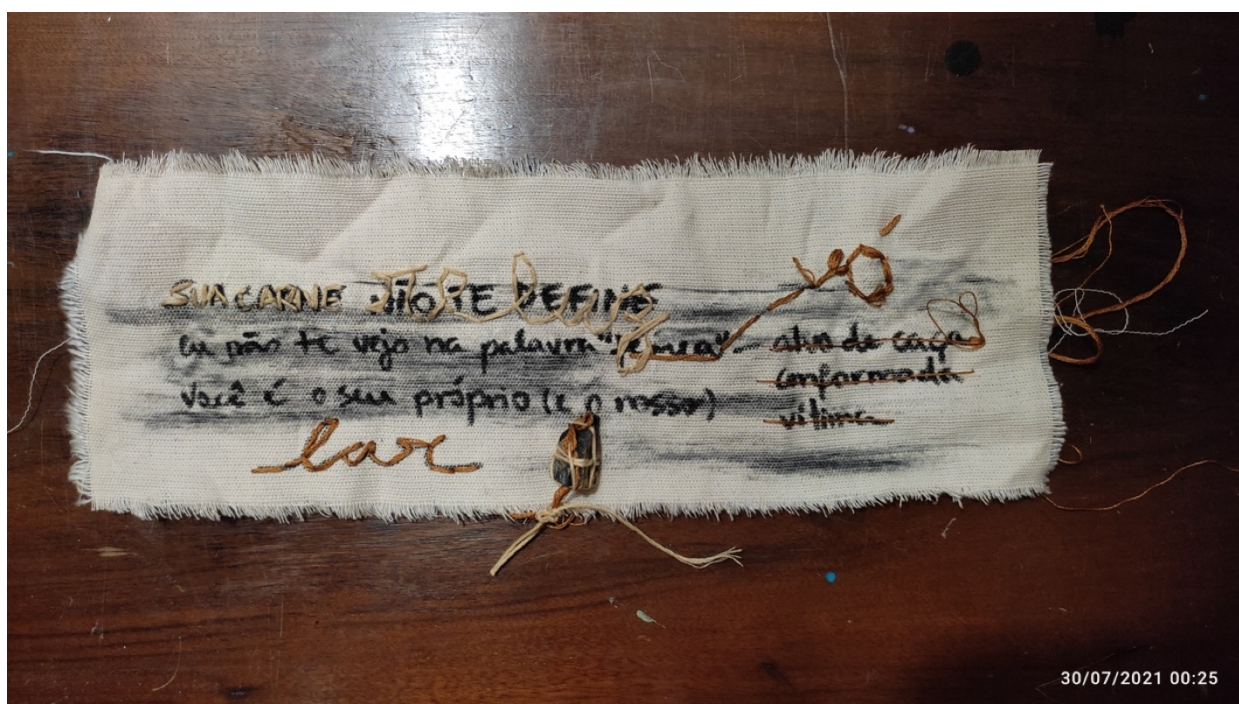 SUA CARNE NÃO TE DEFINE
Eu não te vejo na palavra "fêmea".
alvo de caça
conformada
vítima
você é o seu próprio (e o nosso)
lar
30/07/2021 00:25